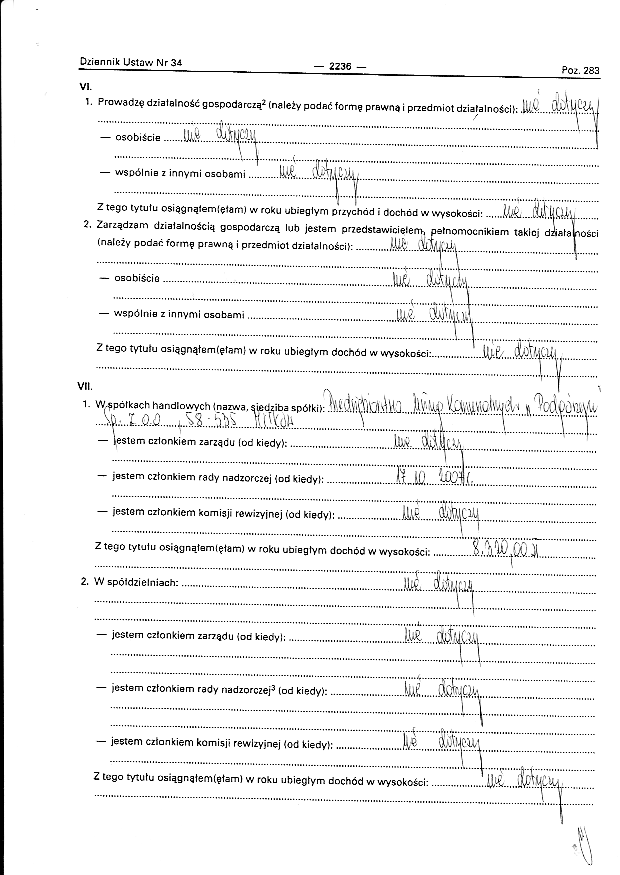 Dziennik Ustaw Nr 34 — 2236 — Poz. 283
VI.
1. Prowadzę działalność gospodarczą² (należy podać formę prawną i przedmiot działalności): nie dotyczy
— osobiście nie dotyczy
— wspólnie z innymi osobami nie dotyczy
Z tego tytułu osiągnąłem(ęłam) w roku ubiegłym przychód i dochód w wysokości: nie dotyczy
2. Zarządzam działalnością gospodarczą lub jestem przedstawicielem, pełnomocnikiem takiej działalności
(należy podać formę prawną i przedmiot działalności): nie dotyczy
— osobiście nie dotyczy
— wspólnie z innymi osobami nie dotyczy
Z tego tytułu osiągnąłem(ęłam) w roku ubiegłym dochód w wysokości: nie dotyczy
VII.
1. W spółkach handlowych (nazwa, siedziba spółki): Usług Komunalnych
Sp. z o.o., 58-535 Miłków
— jestem członkiem zarządu (od kiedy): nie dotyczy
— jestem członkiem rady nadzorczej (od kiedy): 17.10.2007r.
— jestem członkiem komisji rewizyjnej (od kiedy): nie dotyczy
Z tego tytułu osiągnąłem(ęłam) w roku ubiegłym dochód w wysokości: zł
2. W spółdzielniach: nie dotyczy
— jestem członkiem zarządu (od kiedy): nie dotyczy
— jestem członkiem rady nadzorczej³ (od kiedy): nie dotyczy
— jestem członkiem komisji rewizyjnej (od kiedy): nie dotyczy
Z tego tytułu osiągnąłem(ęłam) w roku ubiegłym dochód w wysokości: nie dotyczy